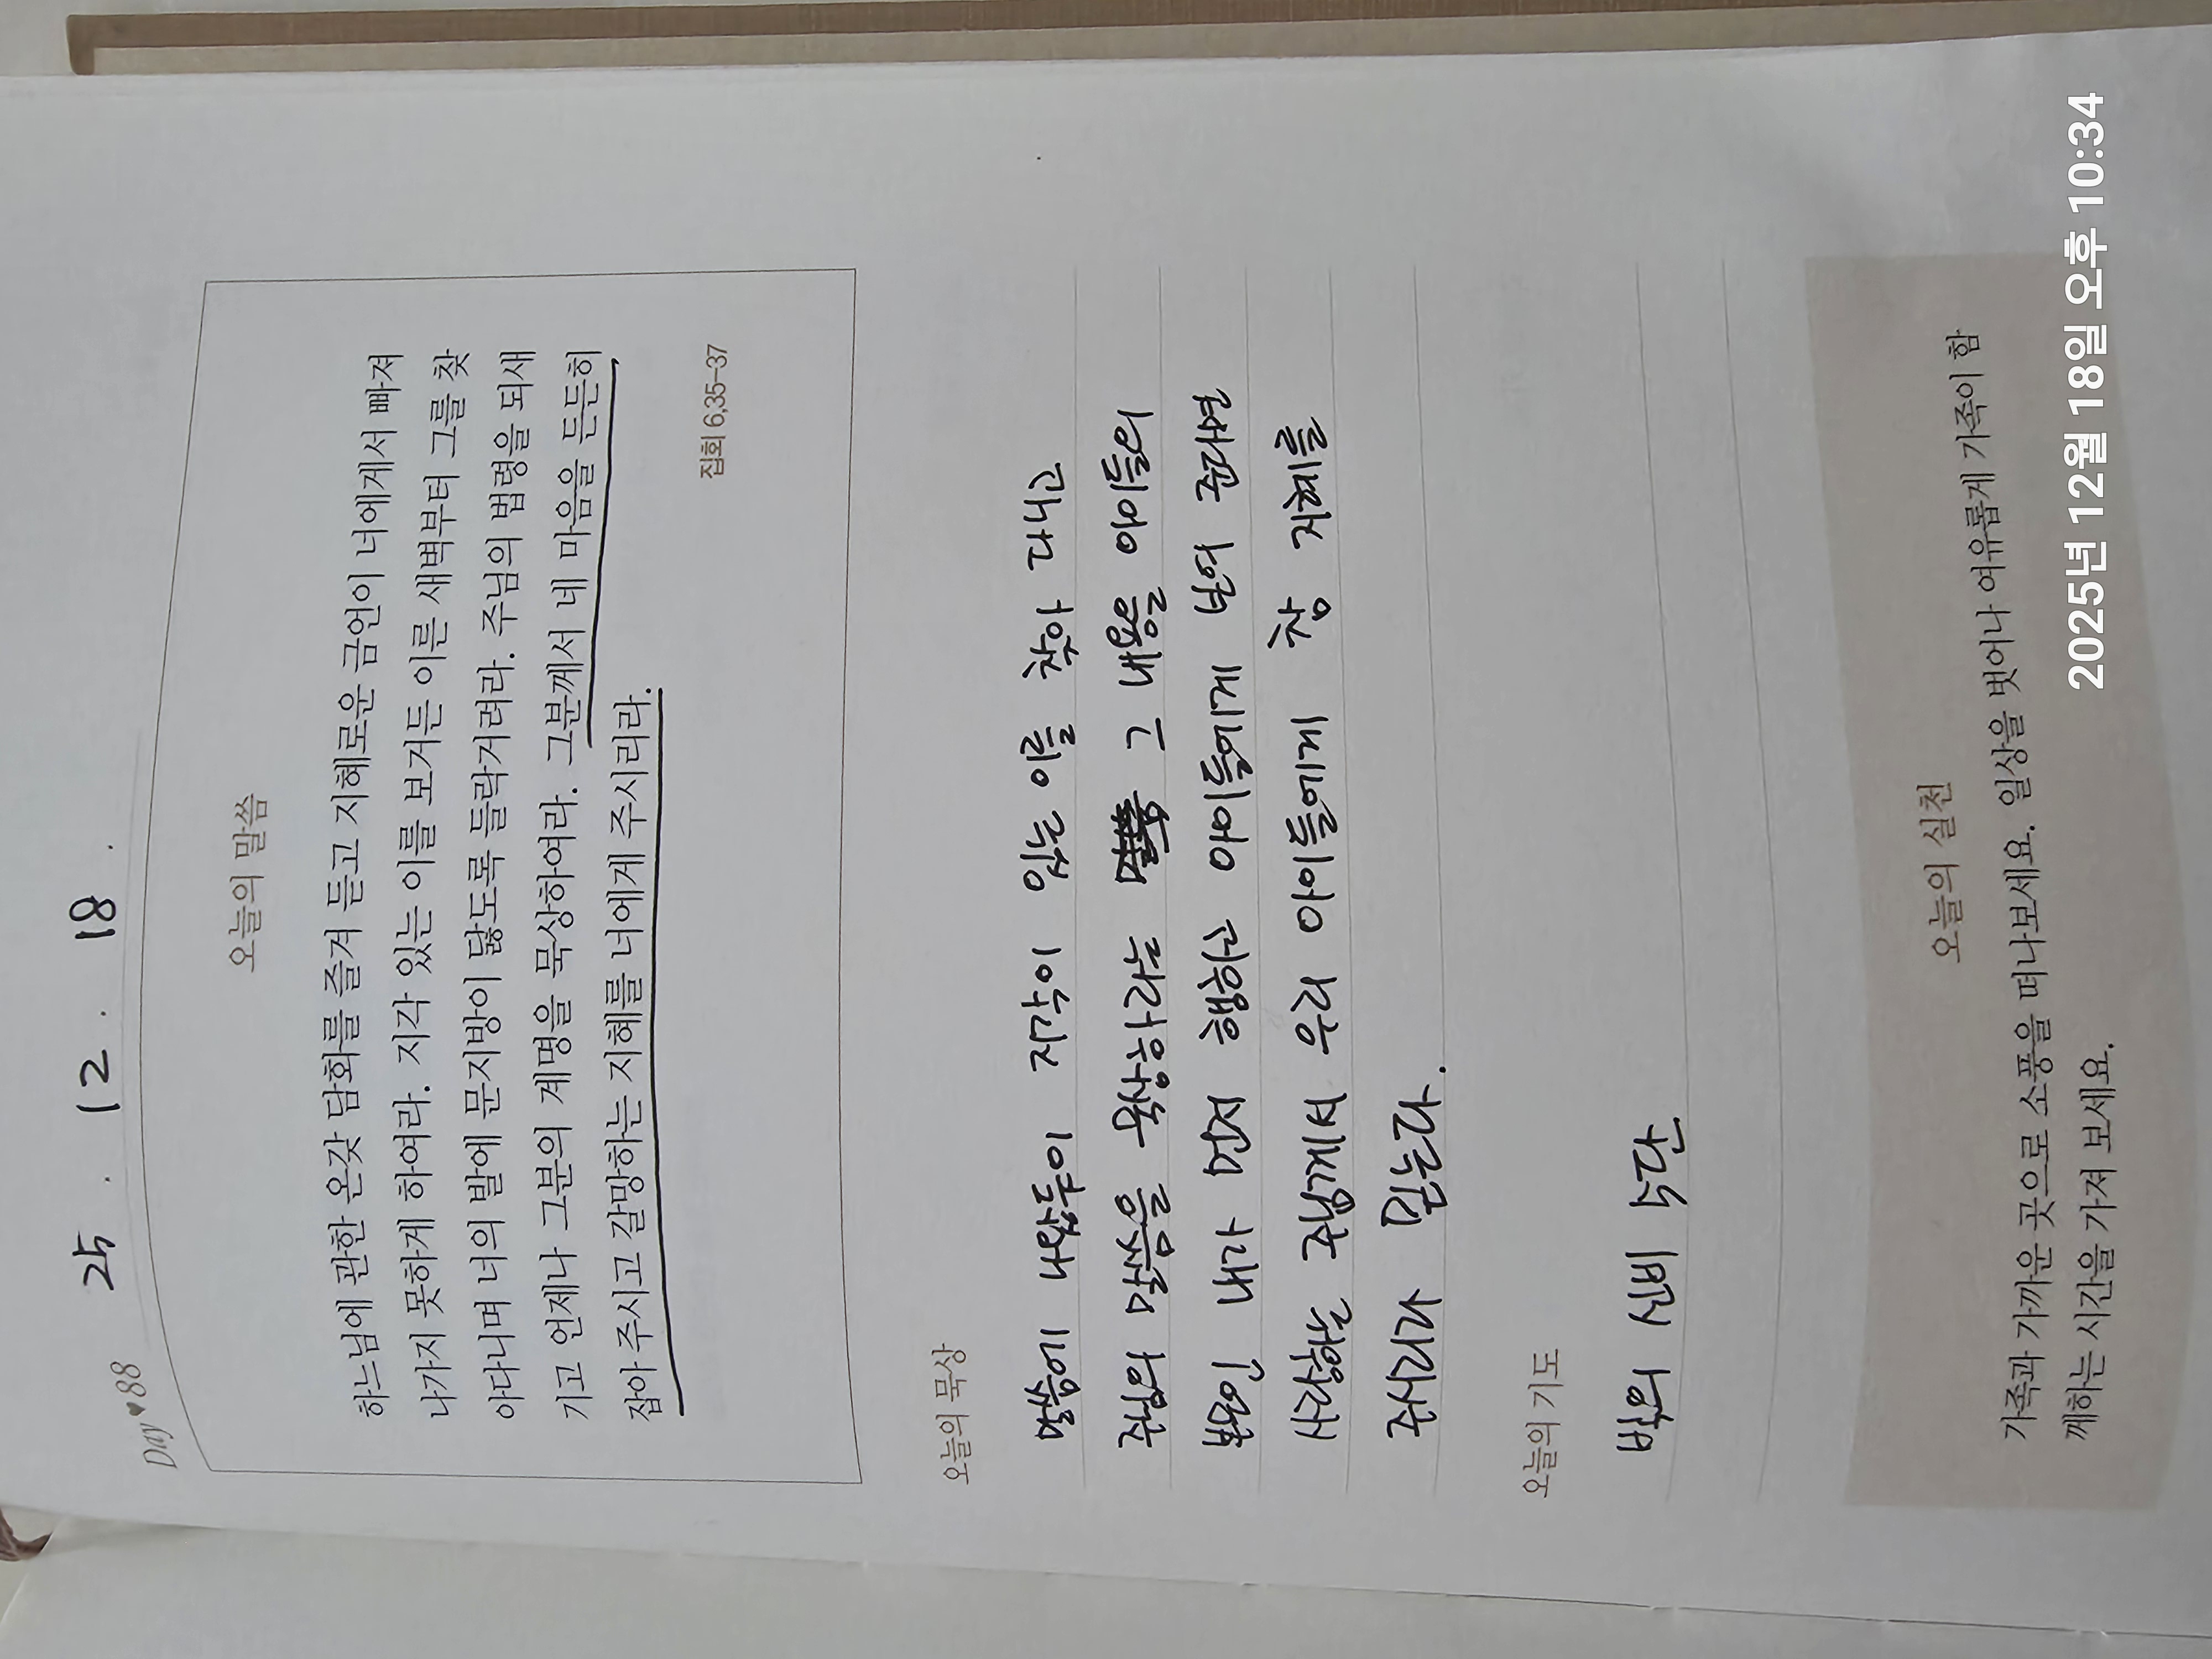 25 . 12 . 18 .
Day♥88
오늘의 말씀
하느님에 관한 온갖 담화를 즐겨 듣고 지혜로운 금언이 너에게서 빠져
나가지 못하게 하여라. 지각 있는 이를 보거든 이른 새벽부터 그를 찾
아다니며 너의 발에 문지방이 닳도록 들락거려라. 주님의 법령을 되새
기고 언제나 그분의 계명을 묵상하여라. 그분께서 네 마음을 든든히
잡아 주시고 갈망하는 지혜를 너에게 주시리라.
집회 6,35-37
오늘의 묵상
말씀에 나왔듯이 지각이 있는 이를 찾아 다니고
주의 말씀을 묵상하라 그 내용을 아이들의
내가 먼저 행하고 아이들에게 보여 준다면
사랑하는 주님께서 우리 아이들에게 참 지혜를
주시리라 믿는다.
오늘의 기도
빛의 신비 5단
오늘의 실천
가족과 가까운 곳으로 소풍을 떠나보세요. 일상을 벗어나 여유롭게 가족이 함
께하는 시간을 가져 보세요.
2025년 12월 18일 오후 10:34